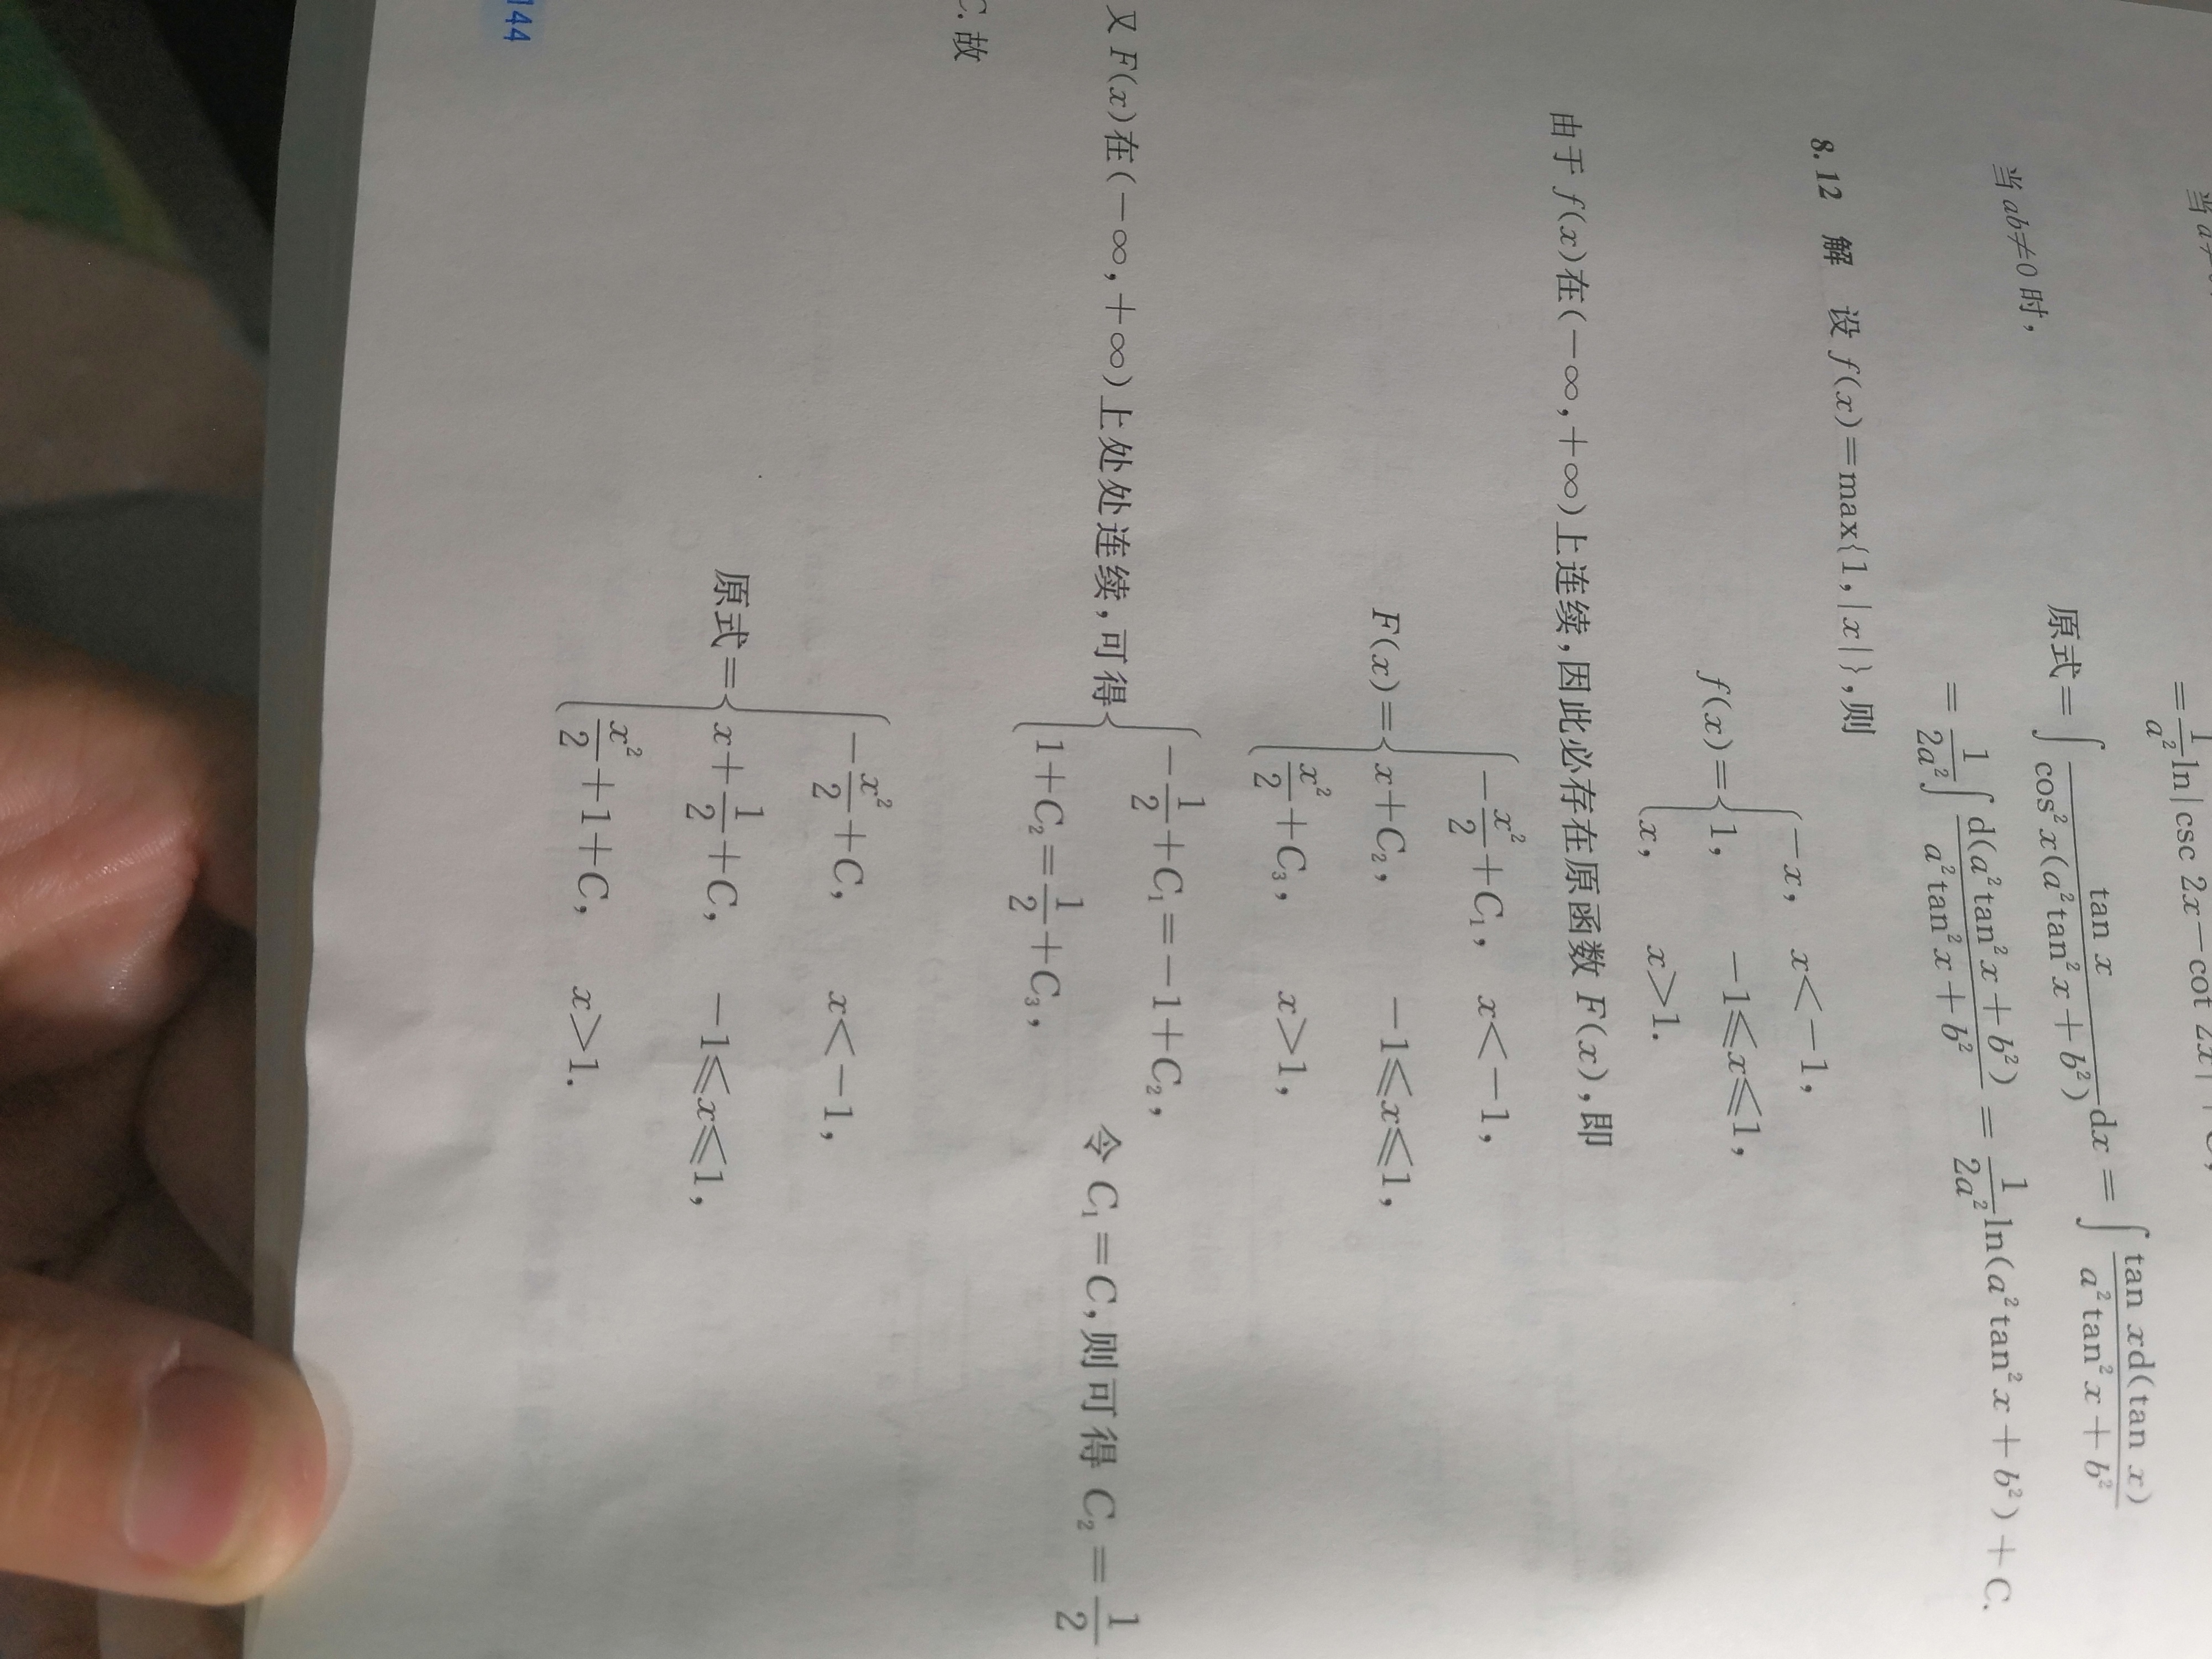 当a≠
=1/a²ln|csc 2x−cot 2x|+C,
当ab≠0时,
原式=∫tan x/cos²x(a²tan²x+b²)dx=∫tan xd(tan x)/a²tan²x+b²
=1/2a²∫d(a²tan²x+b²)/a²tan²x+b²=1/2a²ln(a²tan²x+b²)+C.
8.12 解 设f(x)=max{1,|x|},则
f(x)={−x, x<−1,
1, −1≤x≤1,
x, x>1.
由于f(x)在(−∞,+∞)上连续,因此必存在原函数F(x),即
F(x)={−x²/2+C₁, x<−1,
x+C₂, −1≤x≤1,
x²/2+C₃, x>1,
又F(x)在(−∞,+∞)上处处连续,可得{−1/2+C₁=−1+C₂,
1+C₂=1/2+C₃, 令C₁=C,则可得C₂=1/2
C.故
原式={−x²/2+C, x<−1,
x+1/2+C, −1≤x≤1,
x²/2+1+C, x>1.
144